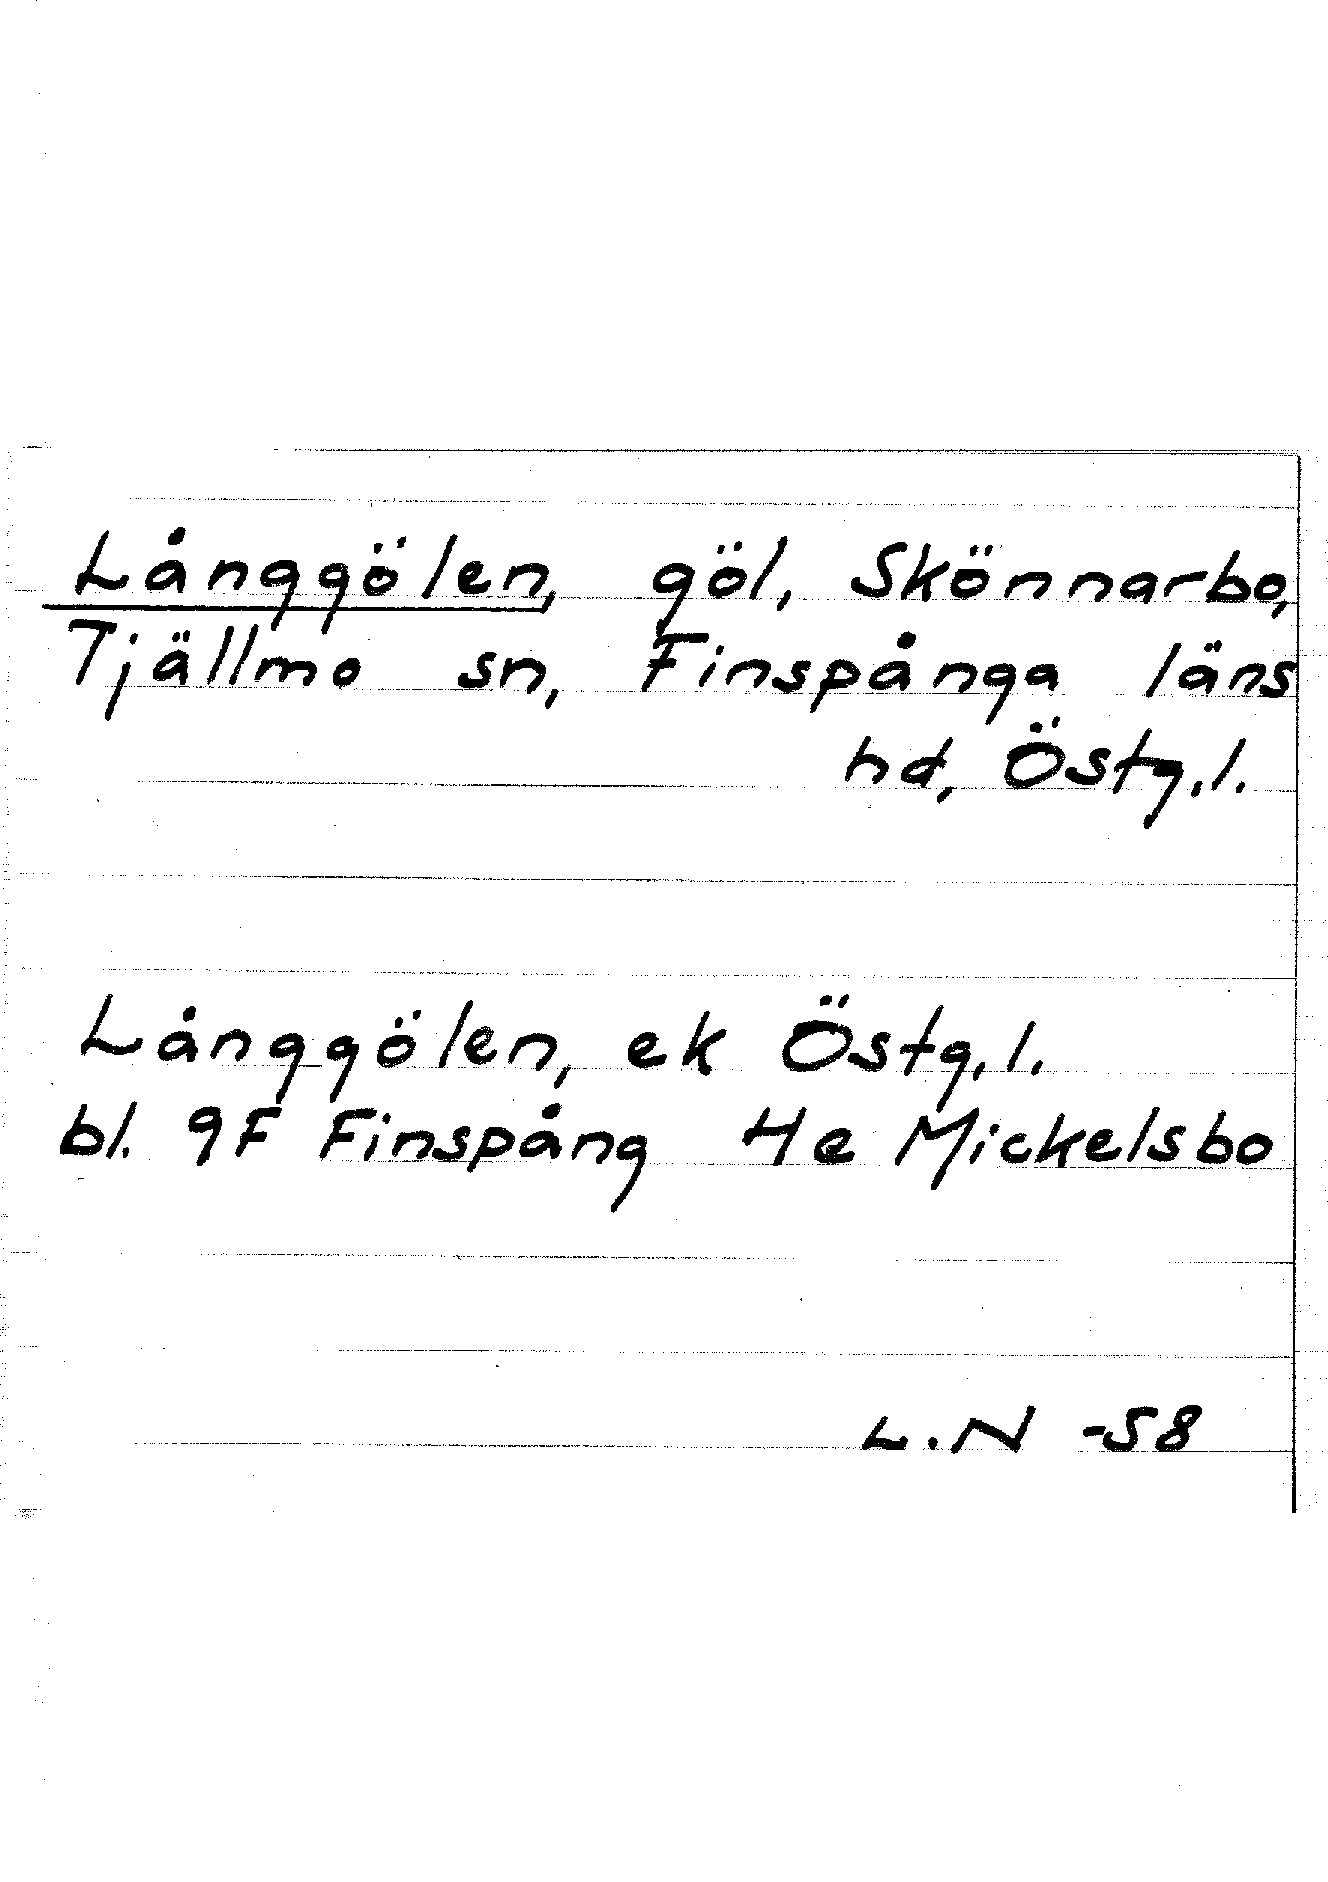 Långgölen, göl, Skönnarbo,
Tjällmo sn, Finspånga läns
hd, Östg.l.
Långgölen, ek Östg.l.
bl. 9F Finspång 4e Mickelsbo
L.N -58